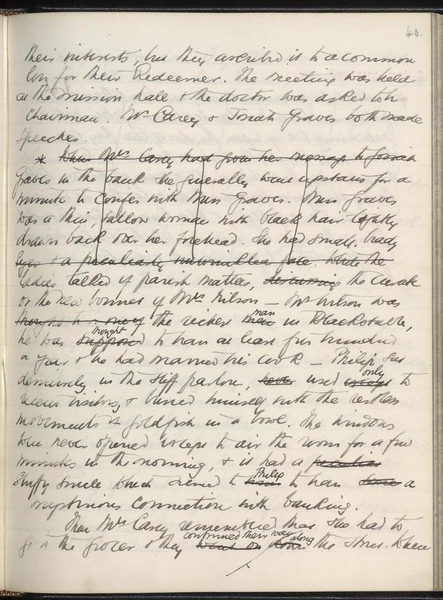 40.
their interests, but they ascribed it to a common
love for their Redeemer. The meeting was held
in the mission hall & the doctor was asked to be
Chairman. Mr Carey & Josiah Graves both made
speeches.
* When Mrs Carey had given her message to Josiah
Graves in the bank she generally went upstairs for a
minute to confer with Miss Graves. Miss Graves
was a thin, sallow woman with black hair tightly
drawn back over her forehead. She had small, beady
eyes & a peculiarly unwrinkled face. While the
ladies talked of parish matters, discussing the curate
or the new bonnet of Mrs Wilson – Mr Wilson was
thought to be the richest man men in Blackstable,
he was thought supposed to have at least five hundred
a year & he had married his cook – Philip sat
demurely in the stiff parlour, used only except to
receive visitors, & busied himself with the restless
movements of goldfish in a bowl. The windows
were never opened except to air the room for a few
minutes in the morning, & it had a peculiar
stuffy smell which seemed to Philip him to have a
mysterious connection with banking.
Then Mrs Carey remembered that she had to
go to the grocer & they continued their way went on along the street. When